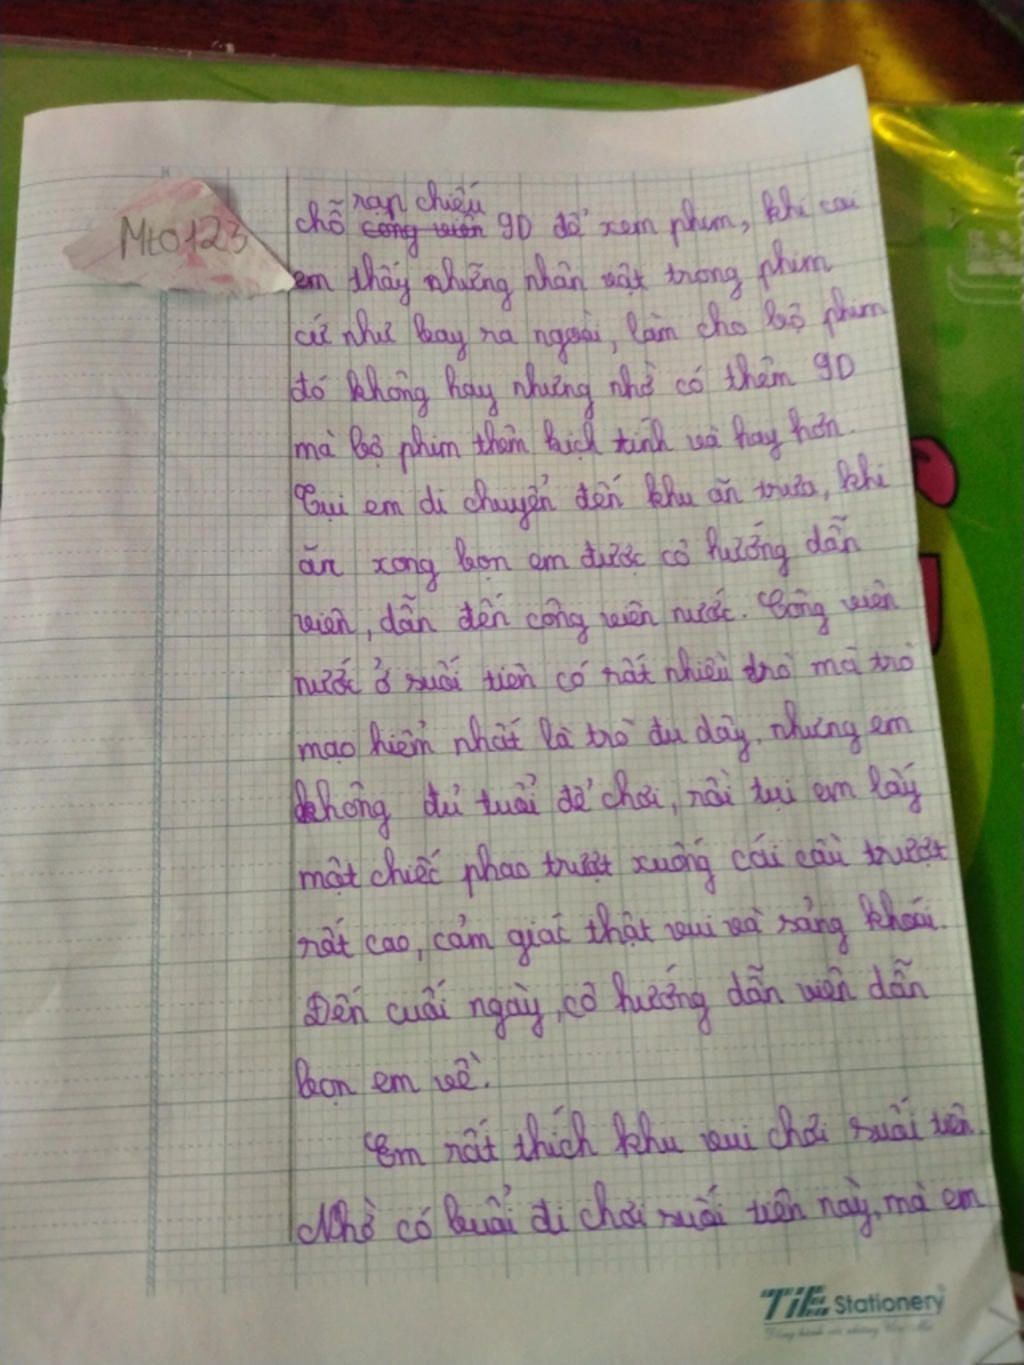 Mt0123
rạp chiếu
chỗ công viên 9D để xem phim, khi coi
em thấy những nhân vật trong phim
cứ như bay ra ngoài, làm cho bộ phim
đó không hay nhưng nhờ có thêm 9D
mà bộ phim thêm kịch tính và hay hơn.
Tụi em di chuyển đến khu ăn trưa, khi
ăn xong bọn em được cô hướng dẫn
viên, dẫn đến công viên nước. Công viên
nước ở suối tiên có rất nhiều trò mà trò
mạo hiểm nhất là trò đu dây, nhưng em
không đủ tuổi để chơi, rồi tụi em lấy
một chiếc phao trượt xuống cái cầu trượt
rất cao, cảm giác thật vui và sảng khoái.
Đến cuối ngày, cô hướng dẫn viên dẫn
bọn em về.
Em rất thích khu vui chơi suối tiên.
Nhờ có buổi đi chơi suối tiên này, mà em
TiE Stationery